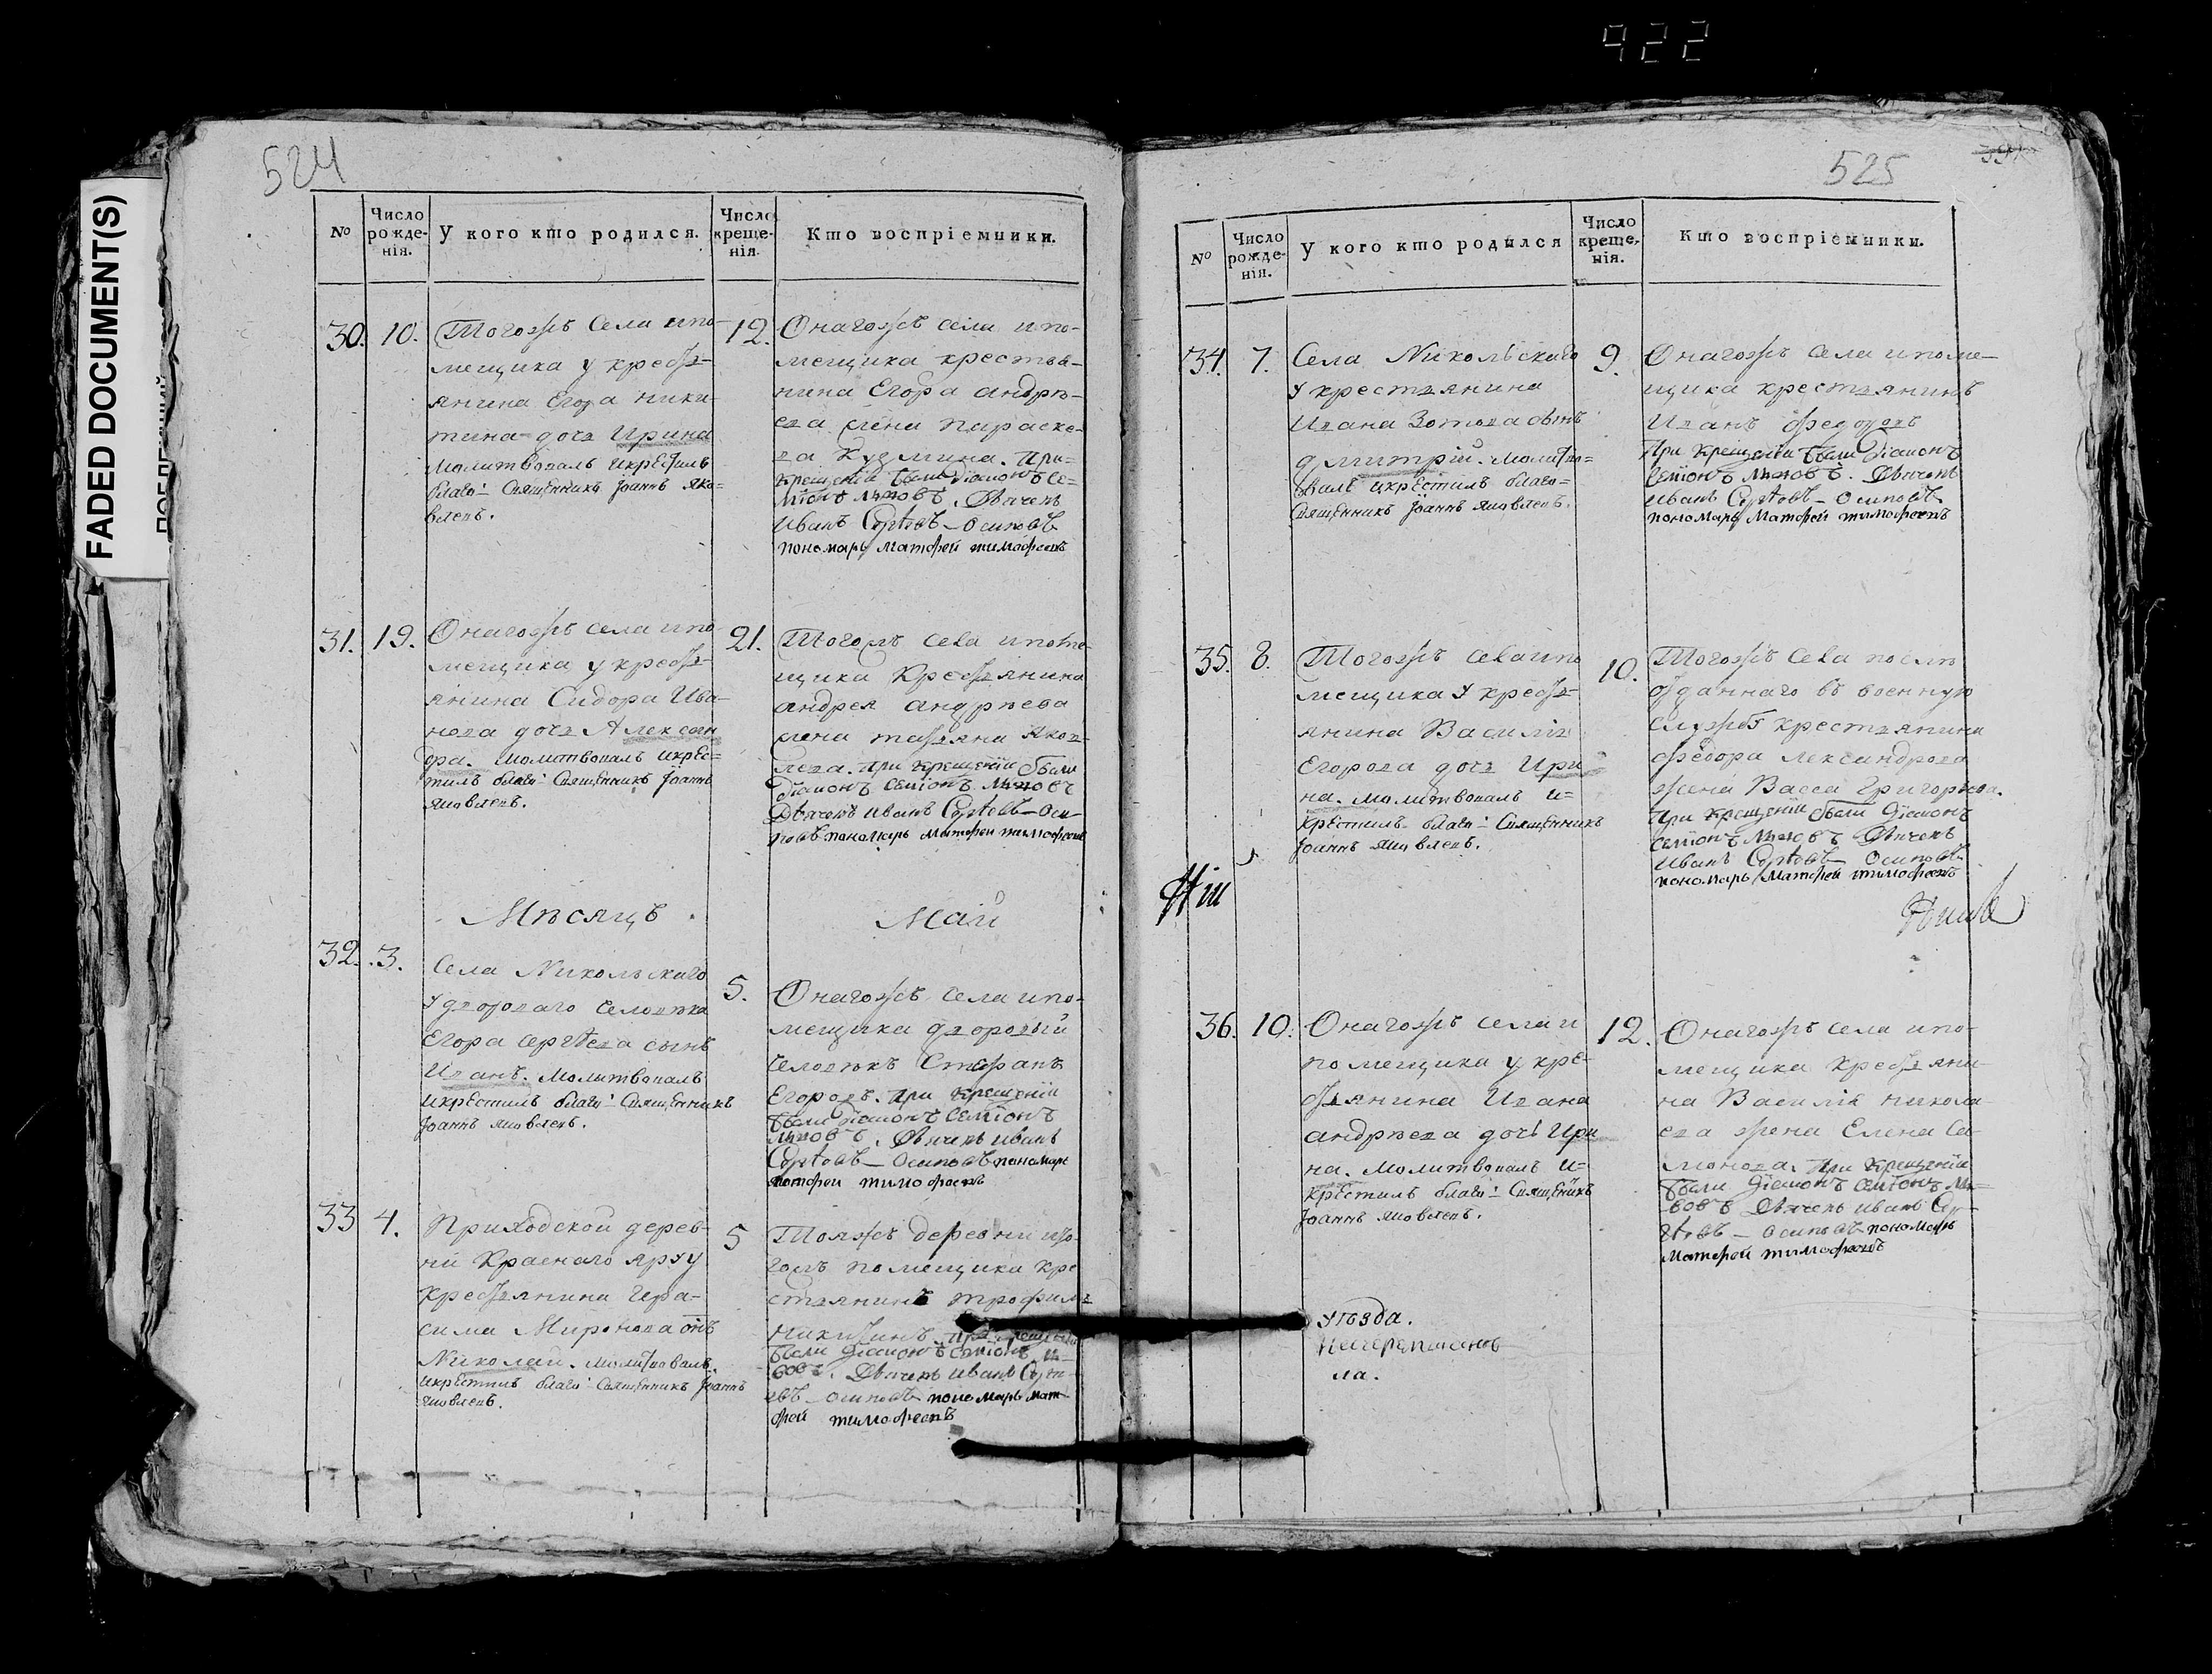 922
FADED DOCUMENT(S)
524
№
Число рожде-нія.
У кого кто родился.
Число креще-нія.
Кто воспріемники.
30. 10.
Тогожъ Села ипо-
мещика у крест-
янина Егора ники-
тина дочь Ирина
Молитвовалъ икрестилъ
благо: Священникъ Іоаннъ Яко-
влевъ.
12.
Онагожъ села ипо-
мещика крестья-
нина Егора андрѣ-
ева жена параске-
ва Кузмина. При-
крещеніи были діаконъ Се-
міонъ Дьячекъ
иванъ Сергѣевъ Осиповъ
пономарь матфей тимофеевъ
31. 19.
Онагожъ села ипо
мещика у крест-
янина Сидора Ива-
нова дочь Алексан
дра. молитвовалъ икрес-
тилъ благо: Священникъ Іоаннъ
яковлевъ.
21.
Тогожъ села ипоме-
щика Крестьянина
андрея андрѣева
жена татьяна Яков-
лева. при крещеніи были
діаконъ Семіонъ
Дьячекъ иванъ Сергѣевъ Оси-
повъ пономарь матфей тимофеевъ
Мѣсяцъ
Май
32. 3.
Села Никольскаго
у двороваго человѣка
Егора сергѣева сынъ
Иванъ. Молитвовалъ
икрестилъ благо: Священникъ
Іоаннъ яковлевъ.
5.
Онагожъ села ипо-
мещика дворовый
человѣкъ Стефанъ
Егоровъ. при крещеніи
были діаконъ Семіонъ
Дьячекъ иванъ
Сергѣевъ Осиповъ пономарь
матфей тимофеевъ
33 4.
Приходской дерев-
ни Краснаго яру у
Крестьянина Гера-
сима Миронова сынъ
Николай. молитвовалъ.
икрестилъ благо: Священникъ Іоаннъ
яковлевъ.
5
Тояжъ деревни ито-
гожъ помещика кре
стьянинъ трофимъ
Никитинъ при крещеніи
были діаконъ Семіонъ
Дьячекъ иванъ Серг-
ѣевъ осиповъ пономарь мат-
фей тимофеевъ
525
№
Число рожде-нія.
У кого кто родился
Число креще-нія.
Кто воспріемники.
34. 7.
Села Никольскаго
у крестьянина
Ивана Зотова сынъ
дмитрій. молитво-
валъ икрестилъ благо-
Священникъ Іоаннъ яковлевъ.
9.
Онагожъ села ипоме-
щика крестьянинъ
Иванъ федоровъ
При крещеніи были діаконъ
Семіонъ Дьячекъ
иванъ Сергѣевъ Осиповъ
пономарь Матфей тимофеевъ
35. 8.
Тогожъ села ипо
мещика у крест-
янина Василія
Егорова дочь Ири
на. молитвовалъ и-
крестилъ благо: Священникъ
Іоаннъ яковлевъ.
10.
Тогожъ села
отданнаго въ военную
службу крестьянина
федора лександрова
жена Васса Григорьева.
при крещеніи были діаконъ
Семіонъ Дьячекъ
Иванъ Сергѣевъ Осиповъ
пономарь Матфей тимофеевъ
36. 10.
Онагожъ села и
помещика у кре-
стьянина Ивана
андрѣева дочь Ири
на. молитвовалъ и-
крестилъ благо: Священникъ
Іоаннъ яковлевъ.
12.
Онагожъ села ипо-
мещика крестьяни-
на Василія никола-
ева жена Елена Са-
монова. при крещеніи
были діаконъ Семіонъ
Дьячекъ иванъ Сер-
гѣевъ осиповъ пономарь
Матфей тимофеевъ
уѣзда.